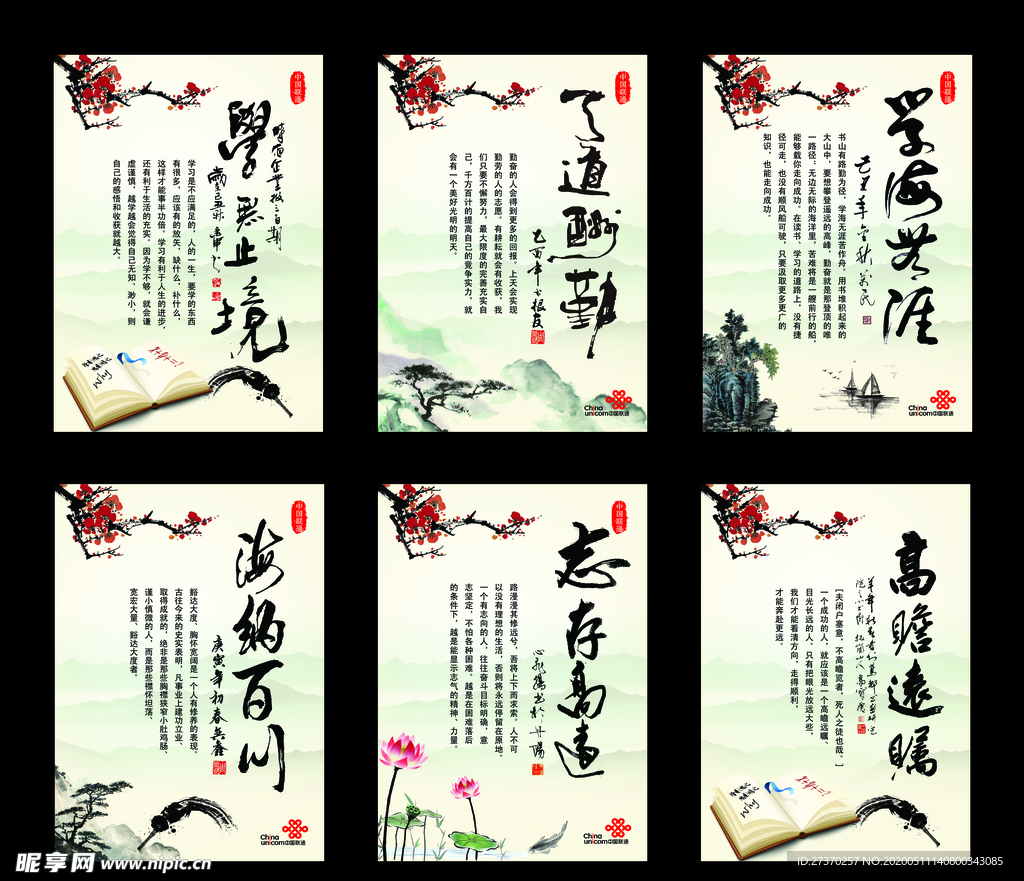 中国联通
學无止境
学习是不应满足的，人的一生，要学的东西
有很多，应该有的放矢，缺什么，补什么，
这样才能事半功倍。学习有利于人生的进步，
还有利于生活的充实。因为学不够，就会谦
虚谨慎，越学越会觉得自己无知、渺小，则
自己的感悟和收获就越大。
中国联通
天道酬勤
乙酉年书根友
勤奋的人会得到更多的回报，上天会实现
勤劳的人的志愿。有耕耘就会有收获，我
们只要不懈努力，最大限度的完善充实自
己，千方百计的提高自己的竞争实力，就
会有一个美好光明的明天。
China
unicom中国联通
中国联通
学海无涯
书山有路勤为径，学海无涯苦作舟。用书堆积起来的
大山中，要想攀登遥远的高峰，勤奋就是那登顶的唯
一路径；无边无际的海洋里，苦难将是一艘前行的船，
能够载你走向成功。在读书、学习的道路上，没有捷
径可走，也没有顺风船可驶，只要汲取更多更广的
知识，也能走向成功。
China
unicom中国联通
中国联通
海纳百川
庚寅年初春兵鑫
豁达大度、胸怀宽阔是一个人有修养的表现。
古往今来的史实表明，凡事业上建功立业、
取得成就的，绝非是那些胸襟狭窄小肚鸡肠、
谨小慎微的人，而是那些襟怀坦荡、
宽宏大量、豁达大度者。
China
unicom中国联通
中国联通
志存高远
路漫漫其修远兮，吾将上下而求索。人不可
以没有理想的生活，否则将永远停留在原地。
一个有志向的人，往往奋斗目标明确，意
志坚定，不怕各种困难。越是在困难落后
的条件下，越是能显示志气的精神、力量。
China
unicom中国联通
高瞻远瞩
[夫闭户塞意，不高瞻览者，死人之徒也哉。]
一个成功的人，就应该是一个高瞻远瞩、
目光长远的人，只有把眼光放远大些，
我们才能看清方向，走得顺利，
才能奔赴更远。
昵享网 www.nipic.cn
ID:27370257 NO:20200511140800343085